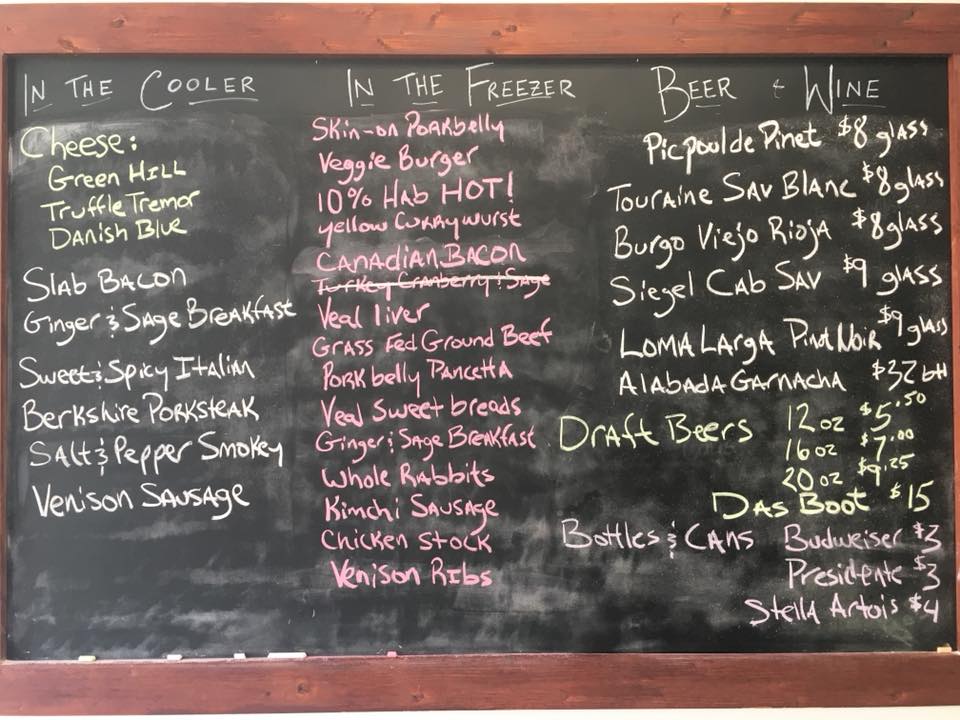 IN THE COOLER
Cheese:
Green Hill
Truffle Tremor
Danish Blue
Slab Bacon
Ginger & Sage Breakfast
Sweet & Spicy Italian
Berkshire Porksteak
Salt & Pepper Smokey
Venison Sausage
IN THE FREEZER
Skin-on Porkbelly
Veggie Burger
10% Hab HOT!
Yellow Currywurst
Canadian Bacon
Turkey Cranberry & Sage
Veal liver
Grass Fed Ground Beef
Porkbelly Pancetta
Veal Sweet breads
Ginger & Sage Breakfast
Whole Rabbits
Kimchi Sausage
Chicken Stock
Venison Ribs
BEER & WINE
Picpoul de Pinet $8 glass
Touraine Sav Blanc $8 glass
Burgo Viejo Rioja $8 glass
Siegel Cab Sav $9 glass
Loma Larga Pinot Noir $9 glass
Alabada Garnacha $32 btl
Draft Beers 12 oz $5.50
16 oz $7.00
20 oz $9.25
Das Boot $15
Bottles & Cans Budweiser $3
Presidente $3
Stella Artois $4